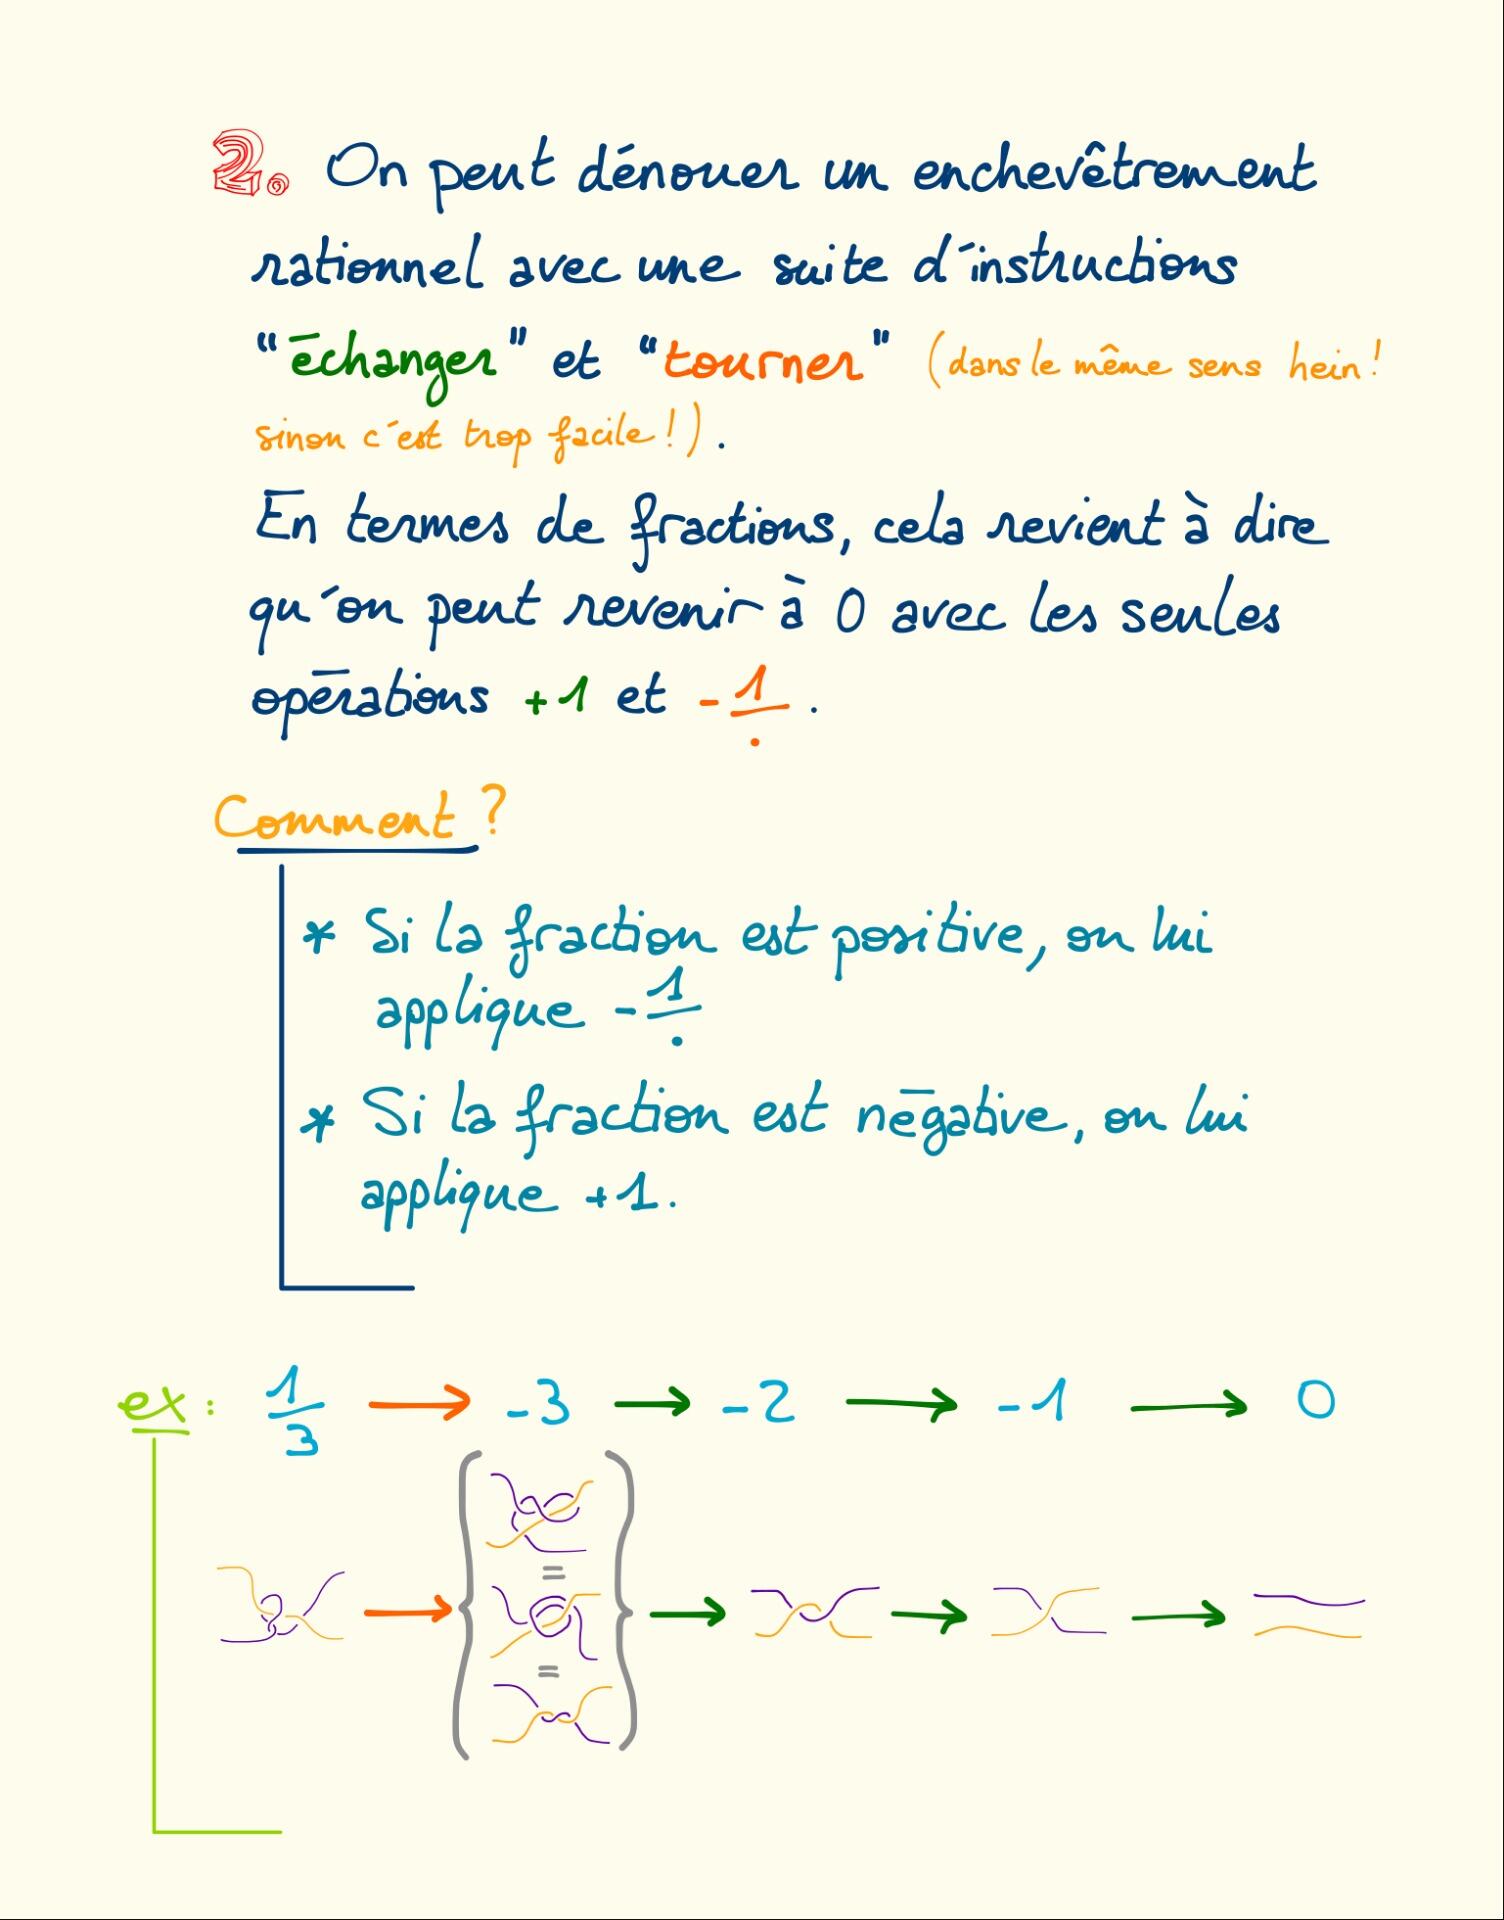 2. On peut dénouer un enchevêtrement
rationnel avec une suite d'instructions
"échanger" et "tourner" (dans le même sens hein!
sinon c'est trop facile!).
En termes de fractions, cela revient à dire
qu'on peut revenir à 0 avec les seules
opérations +1 et -1/. .
Comment ?
* Si la fraction est positive, on lui
applique -1/.
* Si la fraction est négative, on lui
applique +1.
ex: 1/3 → -3 → -2 → -1 → 0
=
=